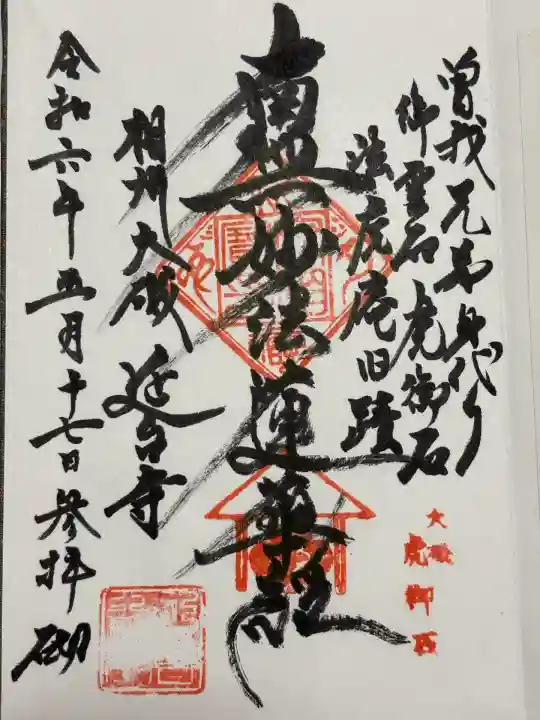 曽我兄弟身代り
御霊石虎御石
法虎庵旧蹟
南無妙法蓮華経
相州大磯 延台寺
令和六年五月十七日参拝
大磯
虎御石